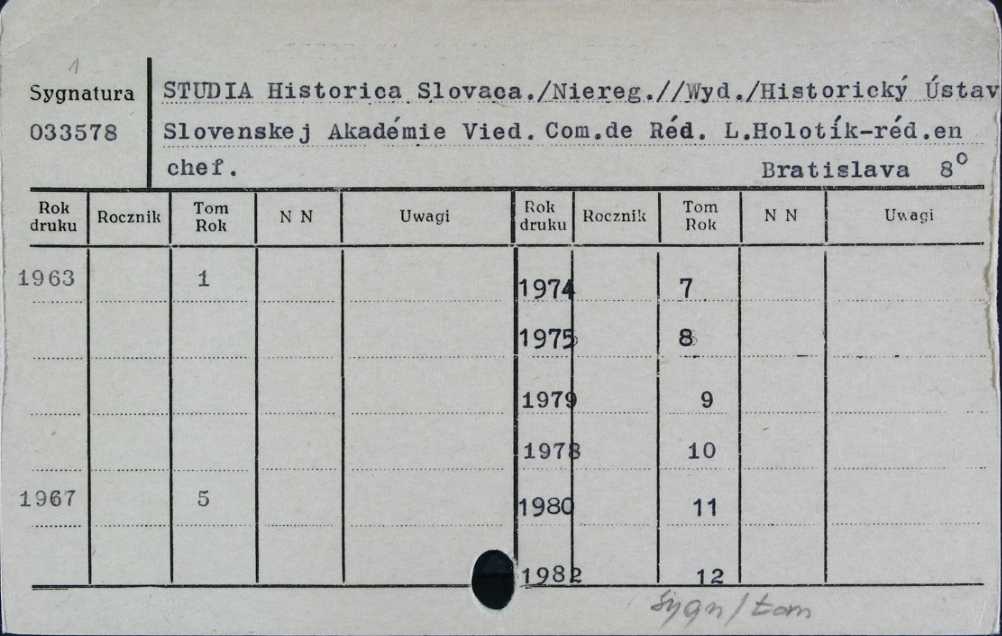 1
Sygnatura
033578
STUDIA Historica Slovaca./Niereg.//Wyd./Historický Ústav
Slovenskej Akadémie Vied. Com.de Réd. L.Holotík-réd.en
chef.
Bratislava 8°
Rok druku Rocznik Tom Rok N N Uwagi Rok druku Rocznik Tom Rok N N Uwagi
1963 1 1974 7
1975 8
1979 9
1978 10
1967 5 1980 11
1982 12
sygn/tom